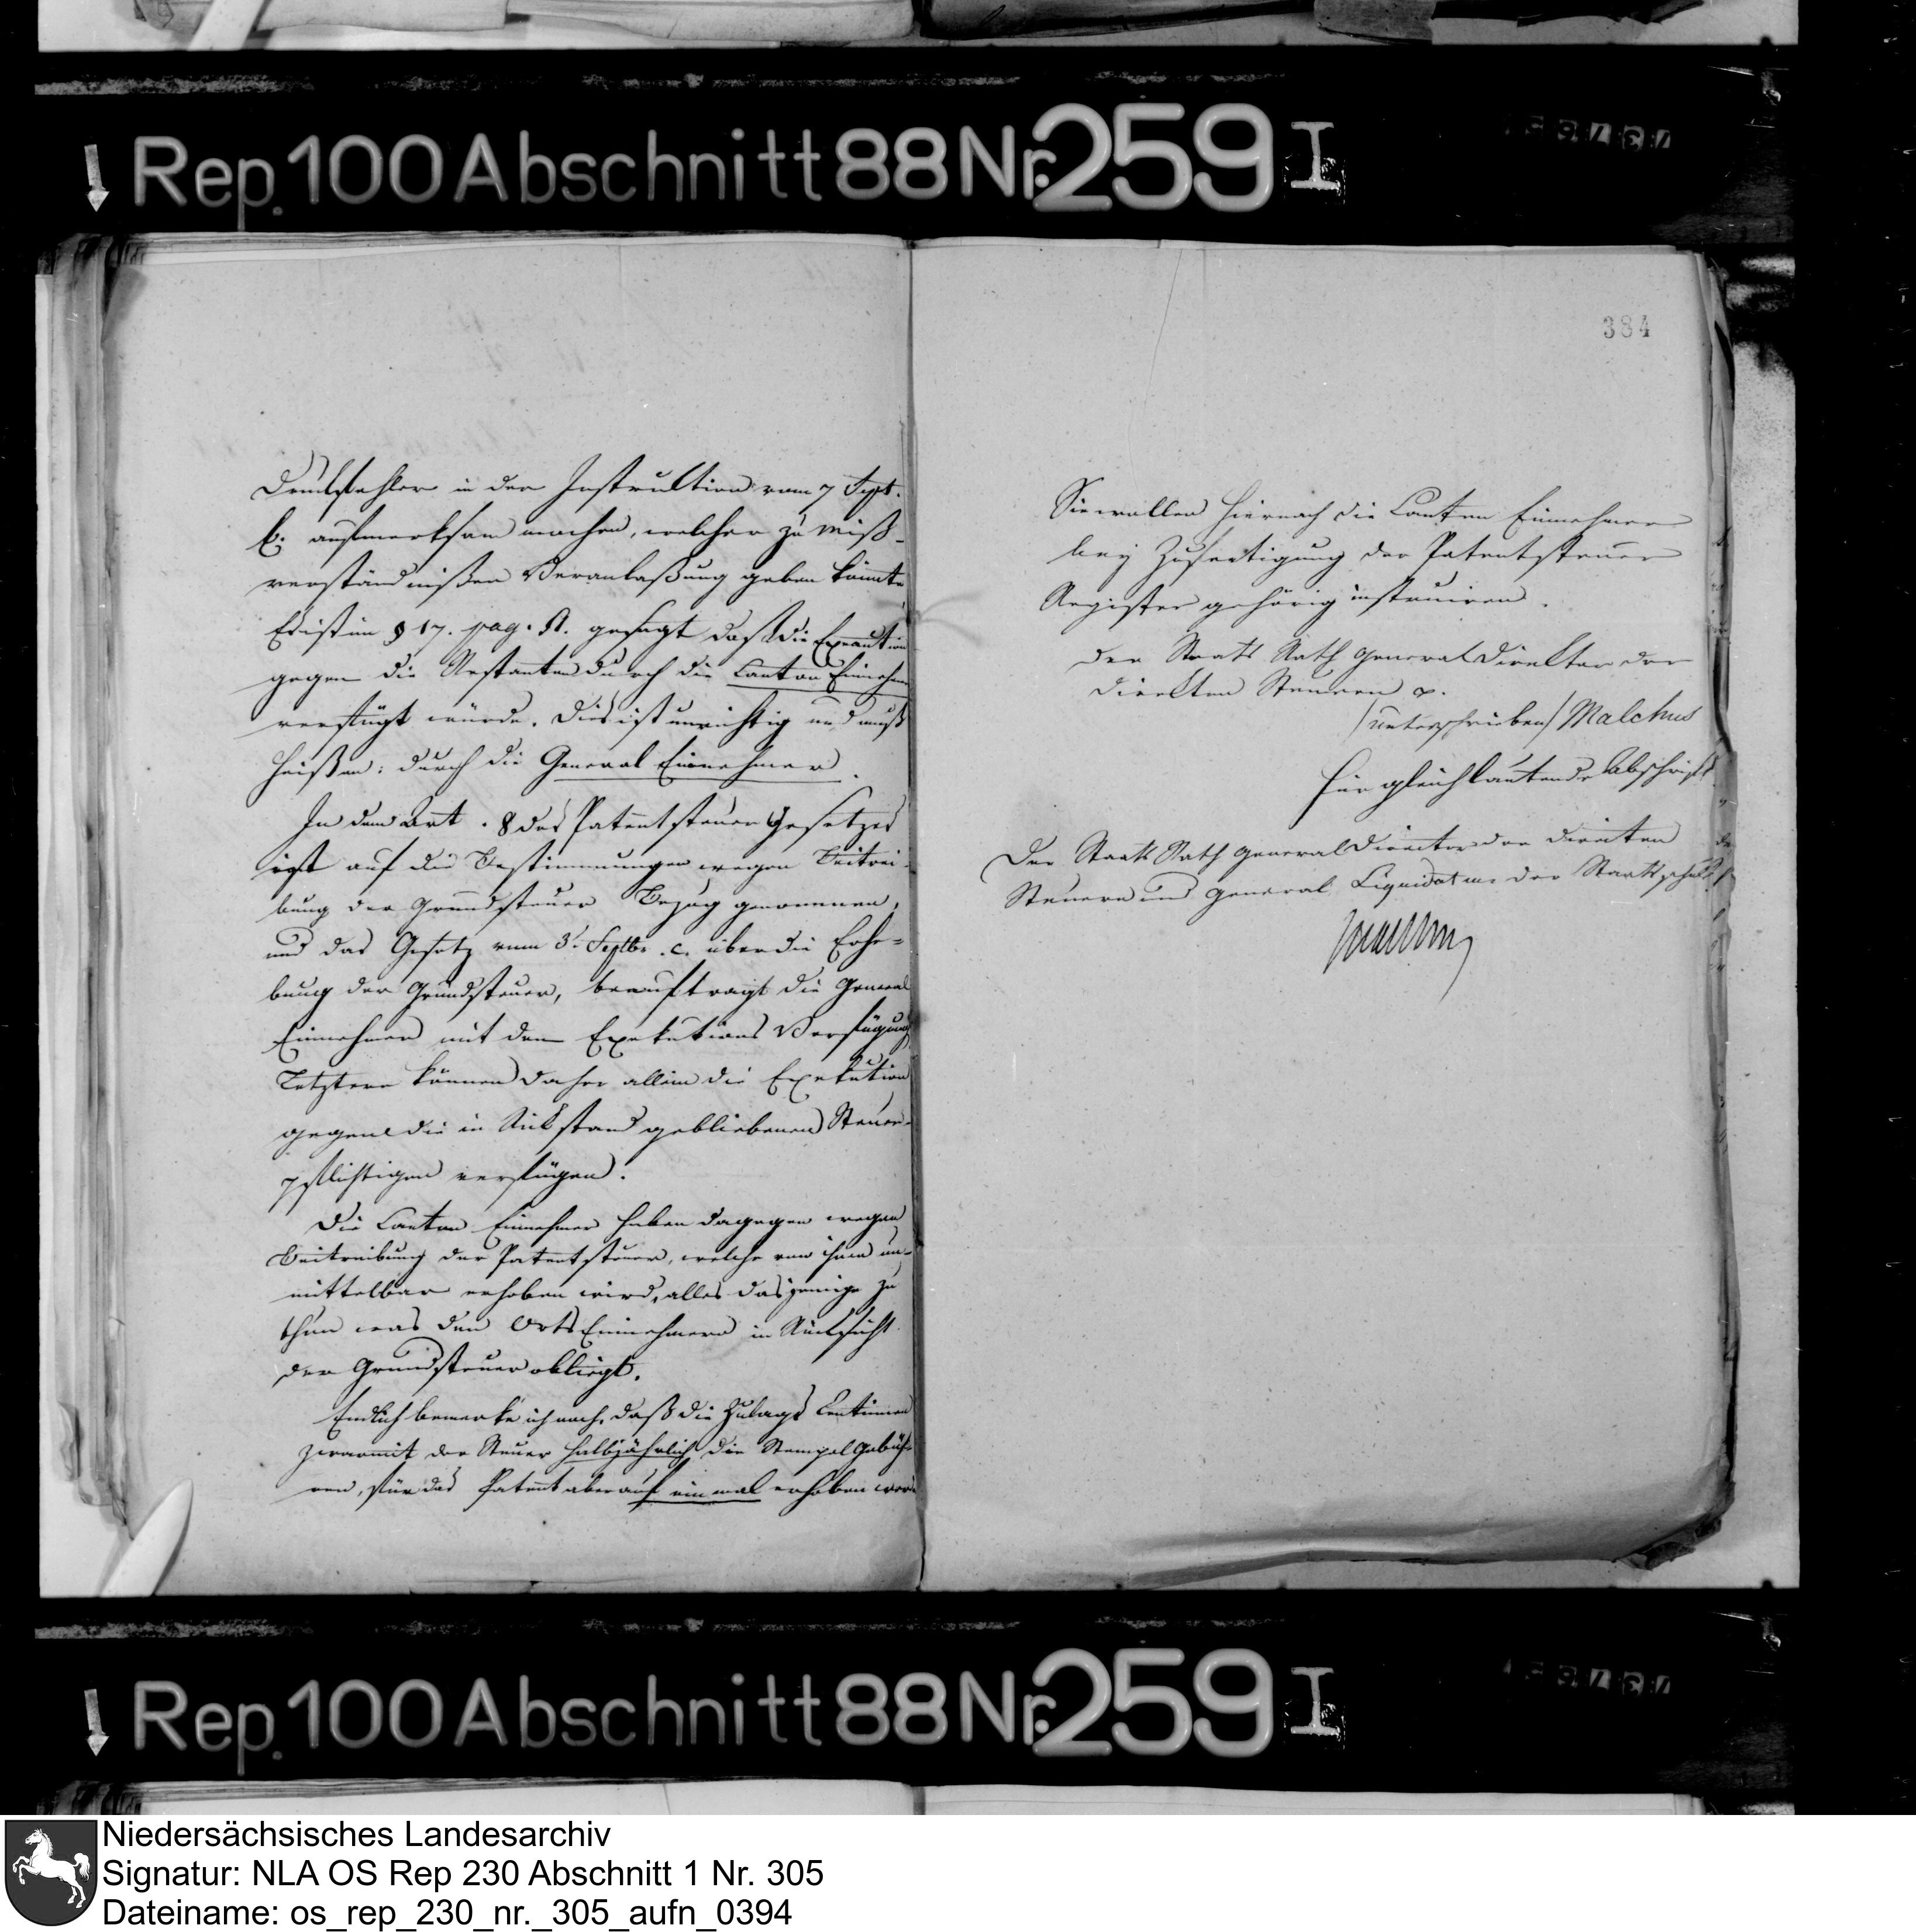 Rep. 100 Abschnitt 88 Nr. 259 I
384
Druckfehler in der Instruktion vom 7 Sept.
c. aufmerksam machen, welcher zu Miß-
verständnißen Veranlaßung geben könnte
Es ist im § 17. pag. gesagt daß die Execution
gegen die Restanten durch die Canton Einnehmer
verfügt würde. Dies ist unrichtig und muß
heißen: durch die General Einnehmer.
In dem Art. 8 des Patentsteuer Gesetzes
ist auf die Bestimmungen wegen Beitrei-
bung der Grundsteuer Bezug genommen,
und das Gesetz vom 3t Septbr. c. über die Erhe-
bung der Grundsteuer, beauftragt die General
Einnehmer mit den Exekutions Verfügung
Letztere können daher allein die Exekution
gegen die in Rückstand gebliebenen Steuer-
pflichtigen verfügen.
Die Canton Einnehmer haben dagegen wegen
Beitreibung der Patentsteuer, welche von ihnen un-
mittelbar erhoben wird, alles dasjenige zu
thun was den Orts Einnehmern in Rücksicht
der Grundsteuer obliegt.
Endlich bemerke ich noch, daß die Zulags Centimen
zwar mit der Steuer halbjährlich die Stempel Gebüh-
ren, für das Patent aber auf ein mal erhoben werd
Sie wollen hiernach die Canton Einnehmer
bey Zufertigung der Patentsteuer
Register gehörig instruiren.
Der Staats Rath General Direktor der
direkten Steuern p.
/unterschrieben/ Malchus
Für gleichlautende Abschrift
Der Staats Rath General Director der directen
Steuern und General Liquidateur der Staatsschuld
Malchus
Rep. 100 Abschnitt 88 Nr. 259 I
Niedersächsisches Landesarchiv
Signatur: NLA OS Rep 230 Abschnitt 1 Nr. 305
Dateiname: os_rep_230_nr._305_aufn_0394